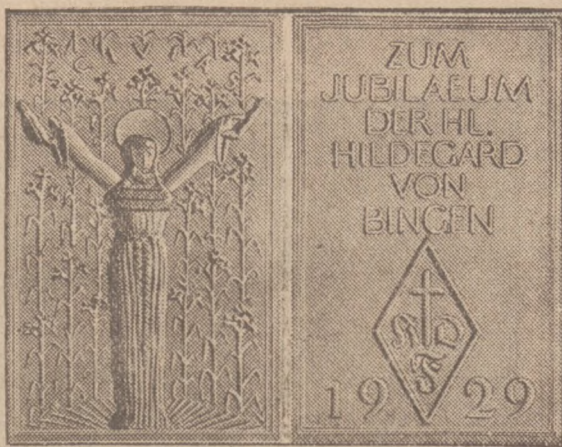 ZUM
JUBILAEUM
DER HL.
HILDEGARD
VON
BINGEN
K D
F
19 29